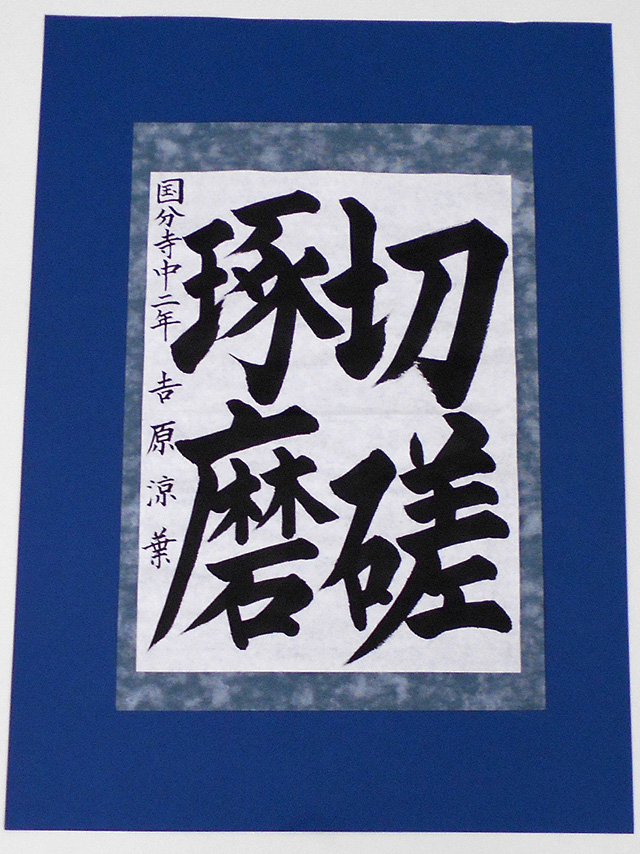 切磋
琢磨
国分寺中二年 吉原涼葉